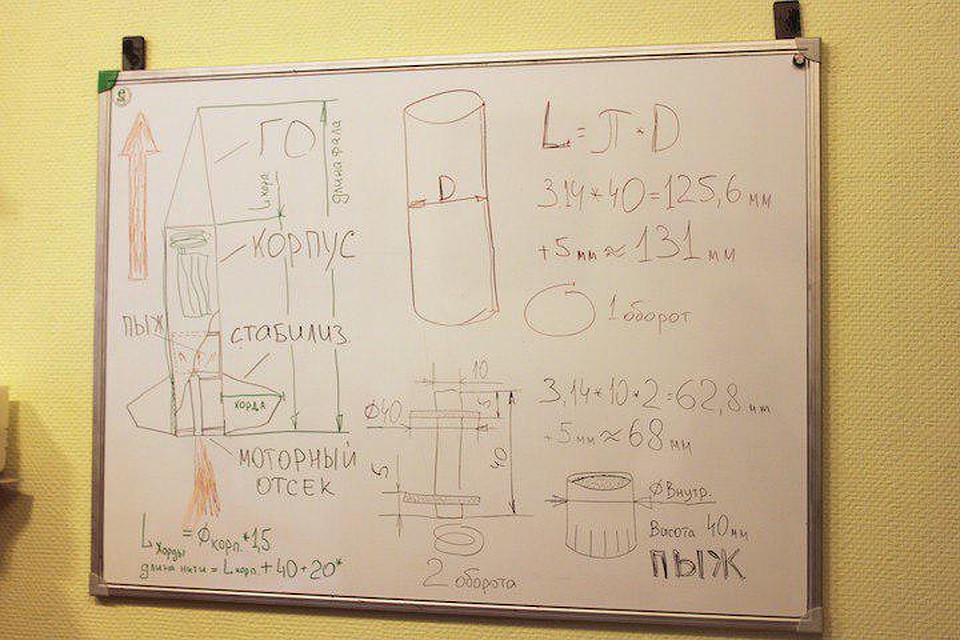 ГО
Lкорп.
длина фала
КОРПУС
ПЫЖ
СТАБИЛИЗ
хорда
МОТОРНЫЙ
ОТСЕК
Lхорды = Øкорп.*1,5
длина нити = Lкорп.+40+20*
D
L = П * D
3.14*40=125,6 мм
+5мм≈131 мм
1 оборот
10
Ø40
5
40
5
2 оборота
3,14*10*2=62,8 мм
+5мм≈68 мм
Ø Внутр.
Высота 40мм
ПЫЖ